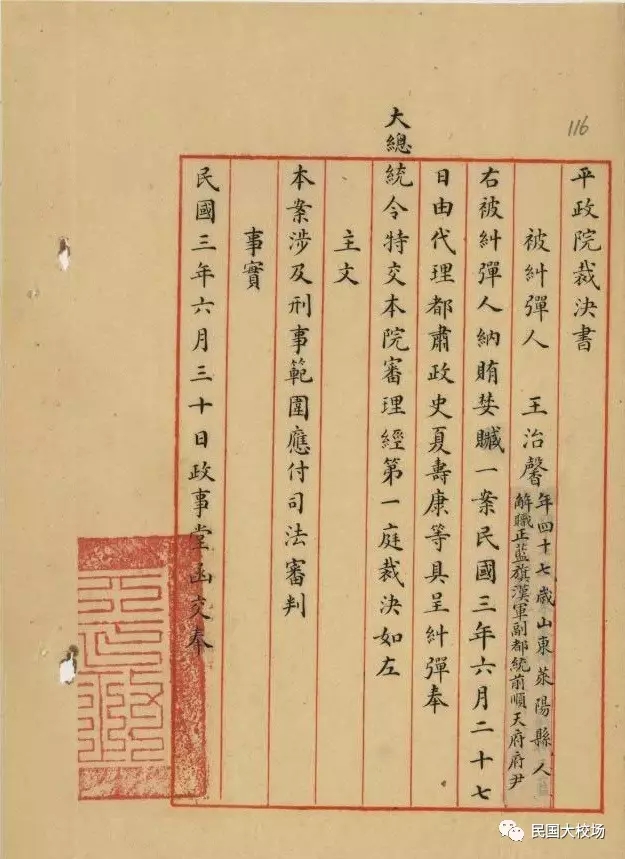 116
平政院裁決書
被糾彈人　王治馨
年四十七歲山東萊陽縣人
解職正藍旗漢軍副都統前順天府府尹
右被糾彈人納賄婪贓一案民國三年六月二十七
日由代理都肅政史夏壽康等具呈糾彈奉
大總統令特交本院審理經第一庭裁決如左
主文
本案涉及刑事範圍應付司法審判
事實
民國三年六月三十日政事堂函交奉
民国大校场